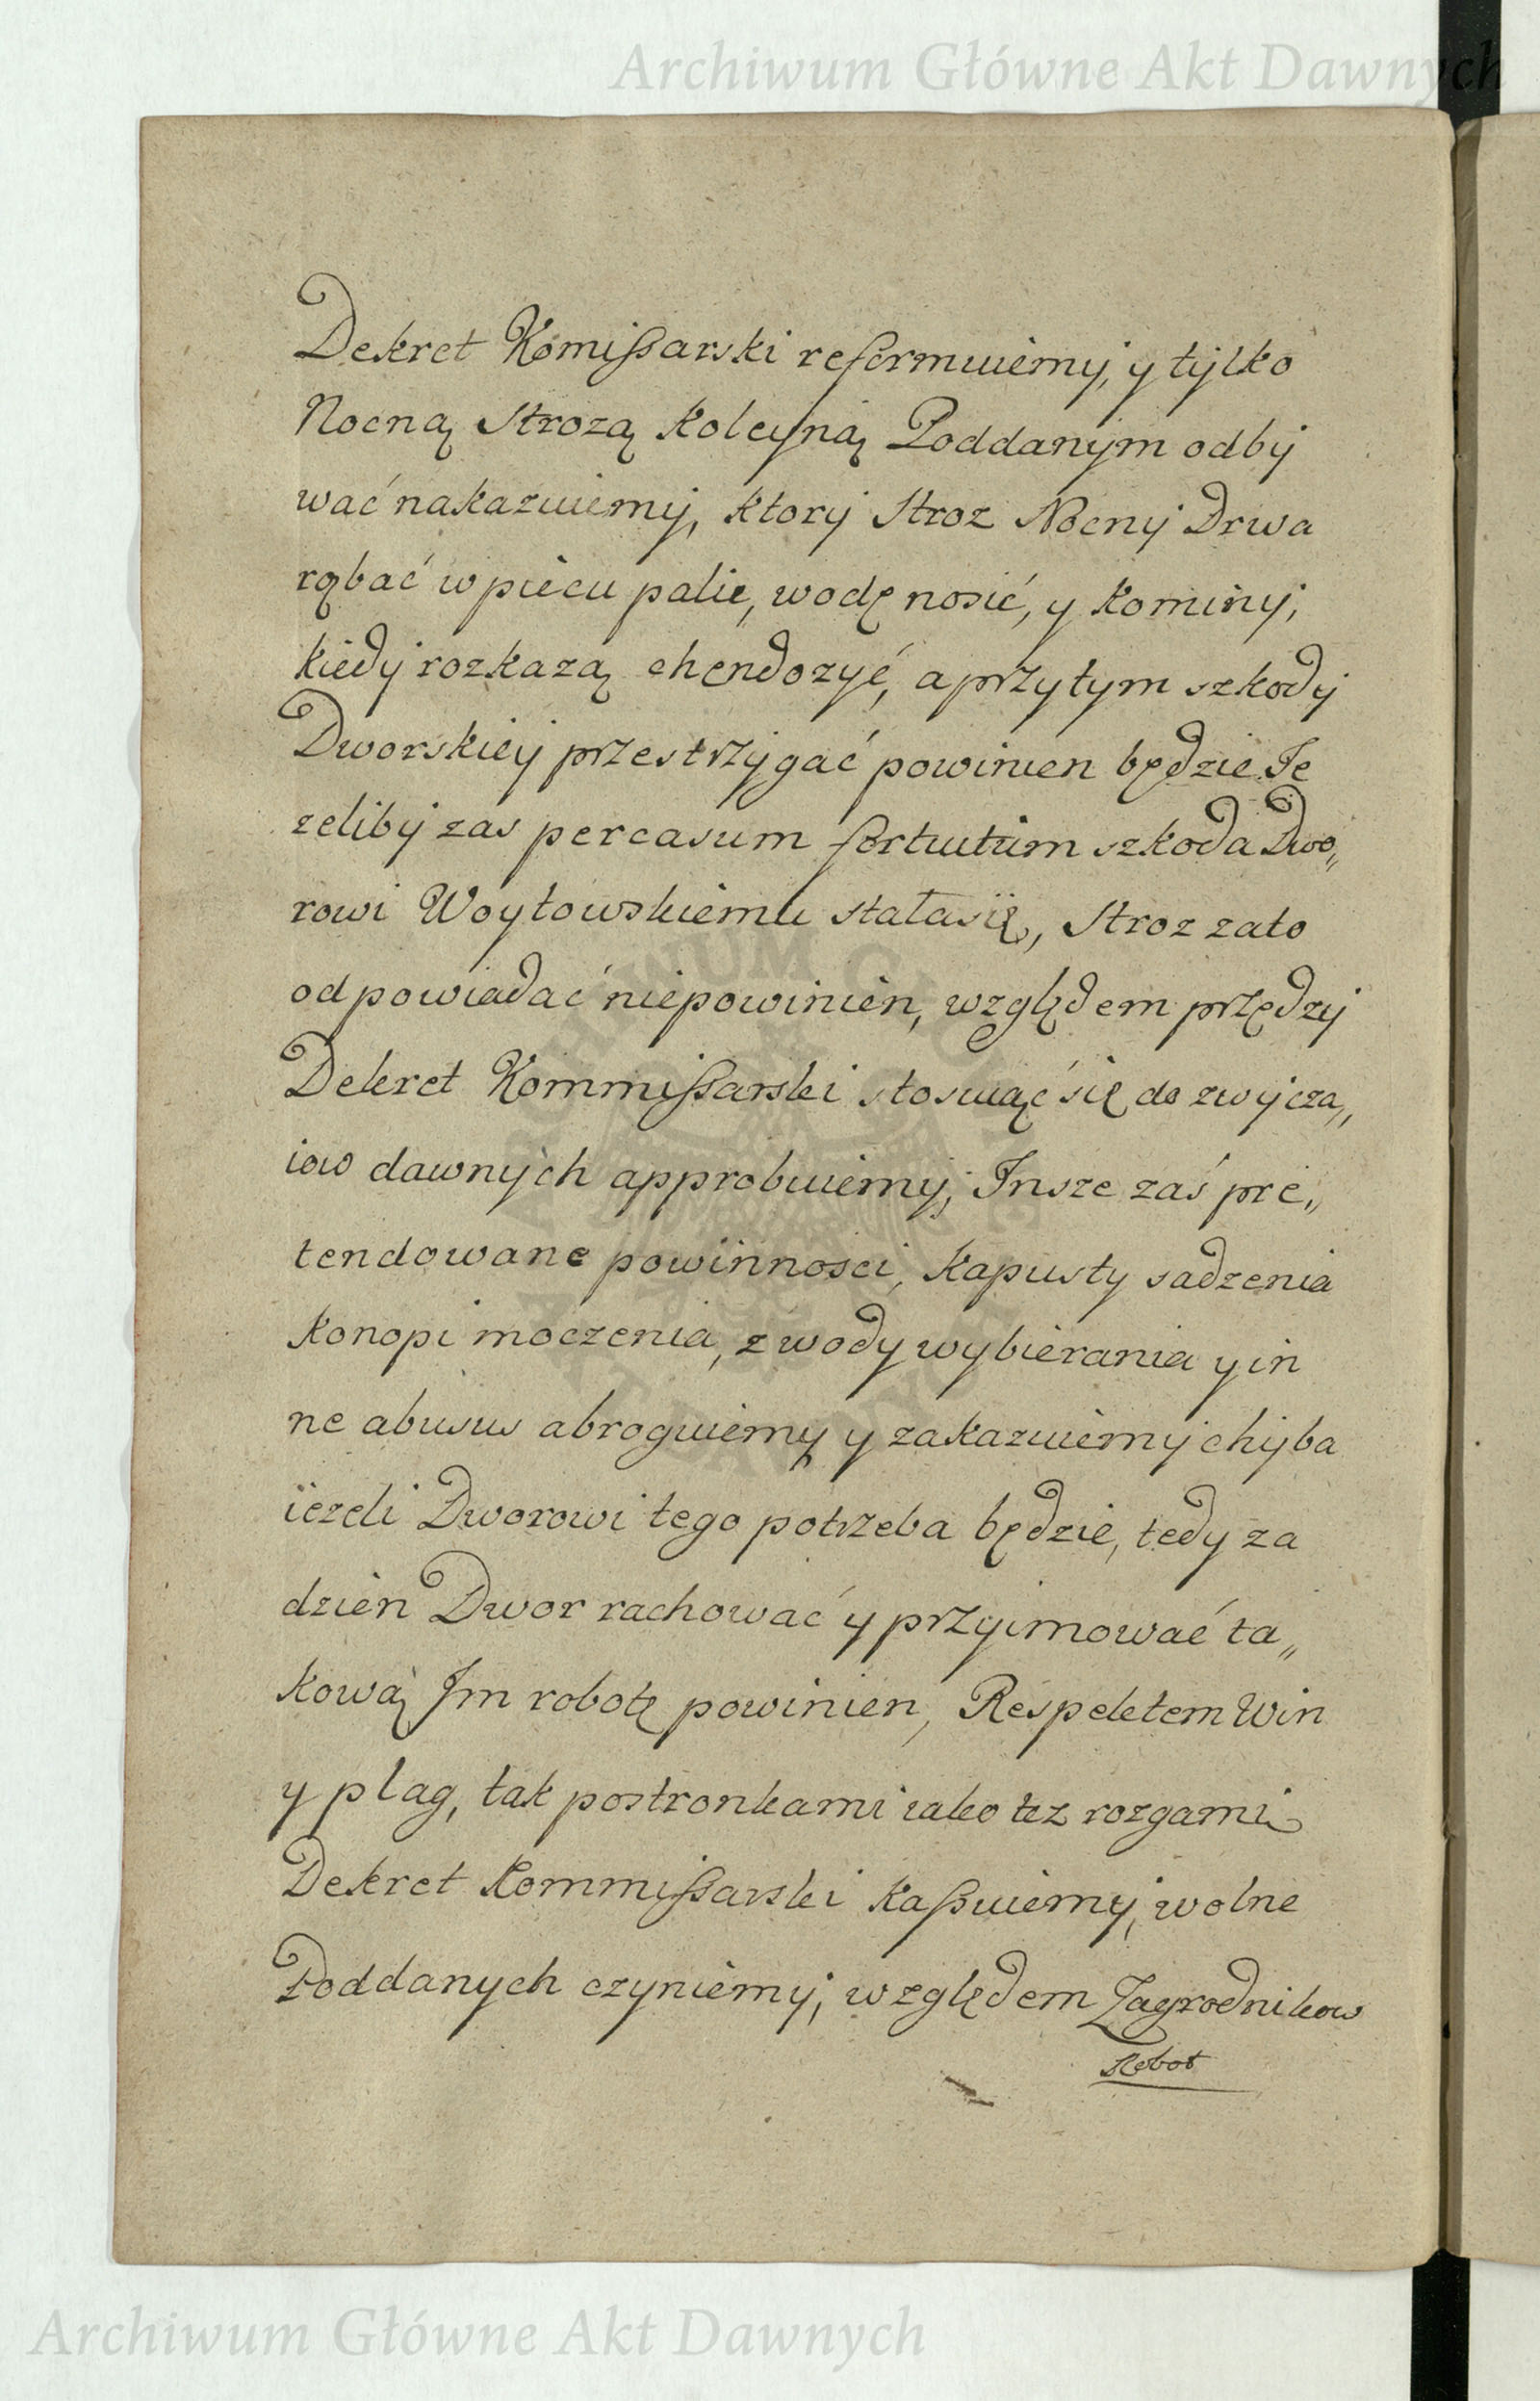 Archiwum Główne Akt Dawnych
Dekret Komissarski reformuiemy, y tylko
Nocną Strozą koleyną Poddanym odby
wać nakazuiemy, ktory Stroz Nocny Drwa
rąbać w piecu palic, wodę nosić, y kominy,
kiedy rozkazą chendozyć, a przytym szkody
Dworskiey przestrzygać powinien będzie Je
zeliby zas per casum fortuitum szkoda Dwo„
rowi Woytowskiemu stałasię, Stroz zato
odpowiadać niepowinien, względem przędzy
Dekret Kommissarski stosuiąć się do zwycza„
iow dawnych approbuiemy, Insze zaś pre„
tendowane powinnosci, kapusty sadzenia
konopi moczenia, z wody wybierania y in
ne abusus abroguiemy y zakazuiemy chyba
iezeli Dworowi tego potrzeba będzie, tedy za
dzien Dwor rachować y przyimować ta„
kową Im robotę powinien, Respektem Win
y plag, tak postronkami iako tez rozgami
Dekret Kommissarski kassuiemy, wolne
Poddanych czyniemy, względem Zagrodnikow
Robot
Archiwum Główne Akt Dawnych